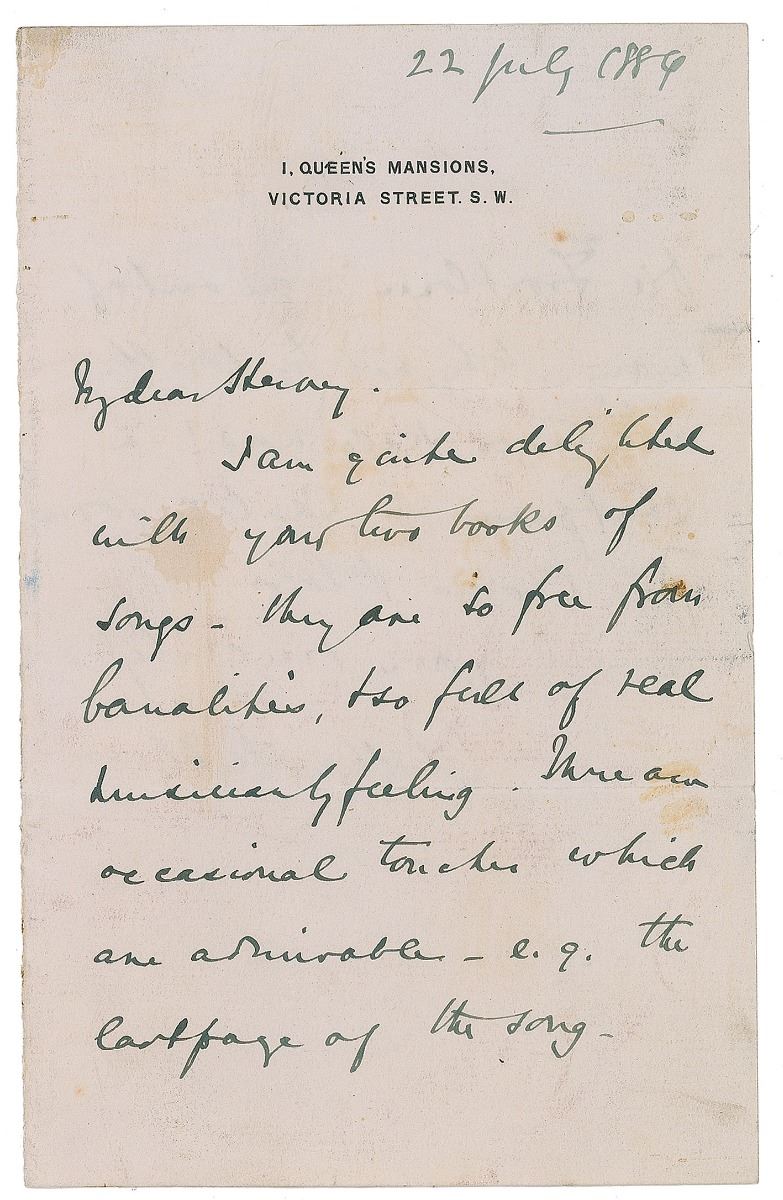 22 July 1884
1, QUEEN'S MANSIONS,
VICTORIA STREET. S. W.
My dear Hervey.
I am quite delighted
with your two books of
songs - they are so free from
banalities, & so full of real
musicianly feeling. There are
occasional touches which
are admirable - e. g. the
last page of the song -